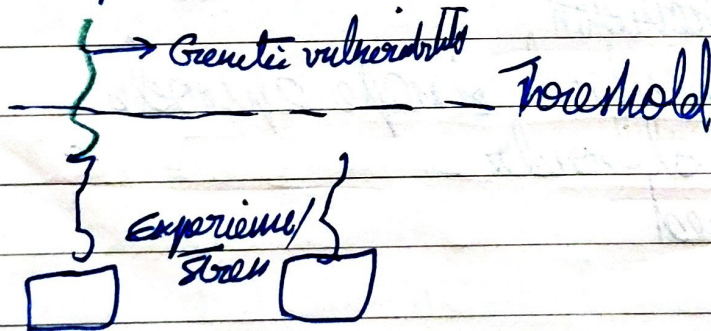 Genetic vulnerability
Threshold
Experience/
Stress